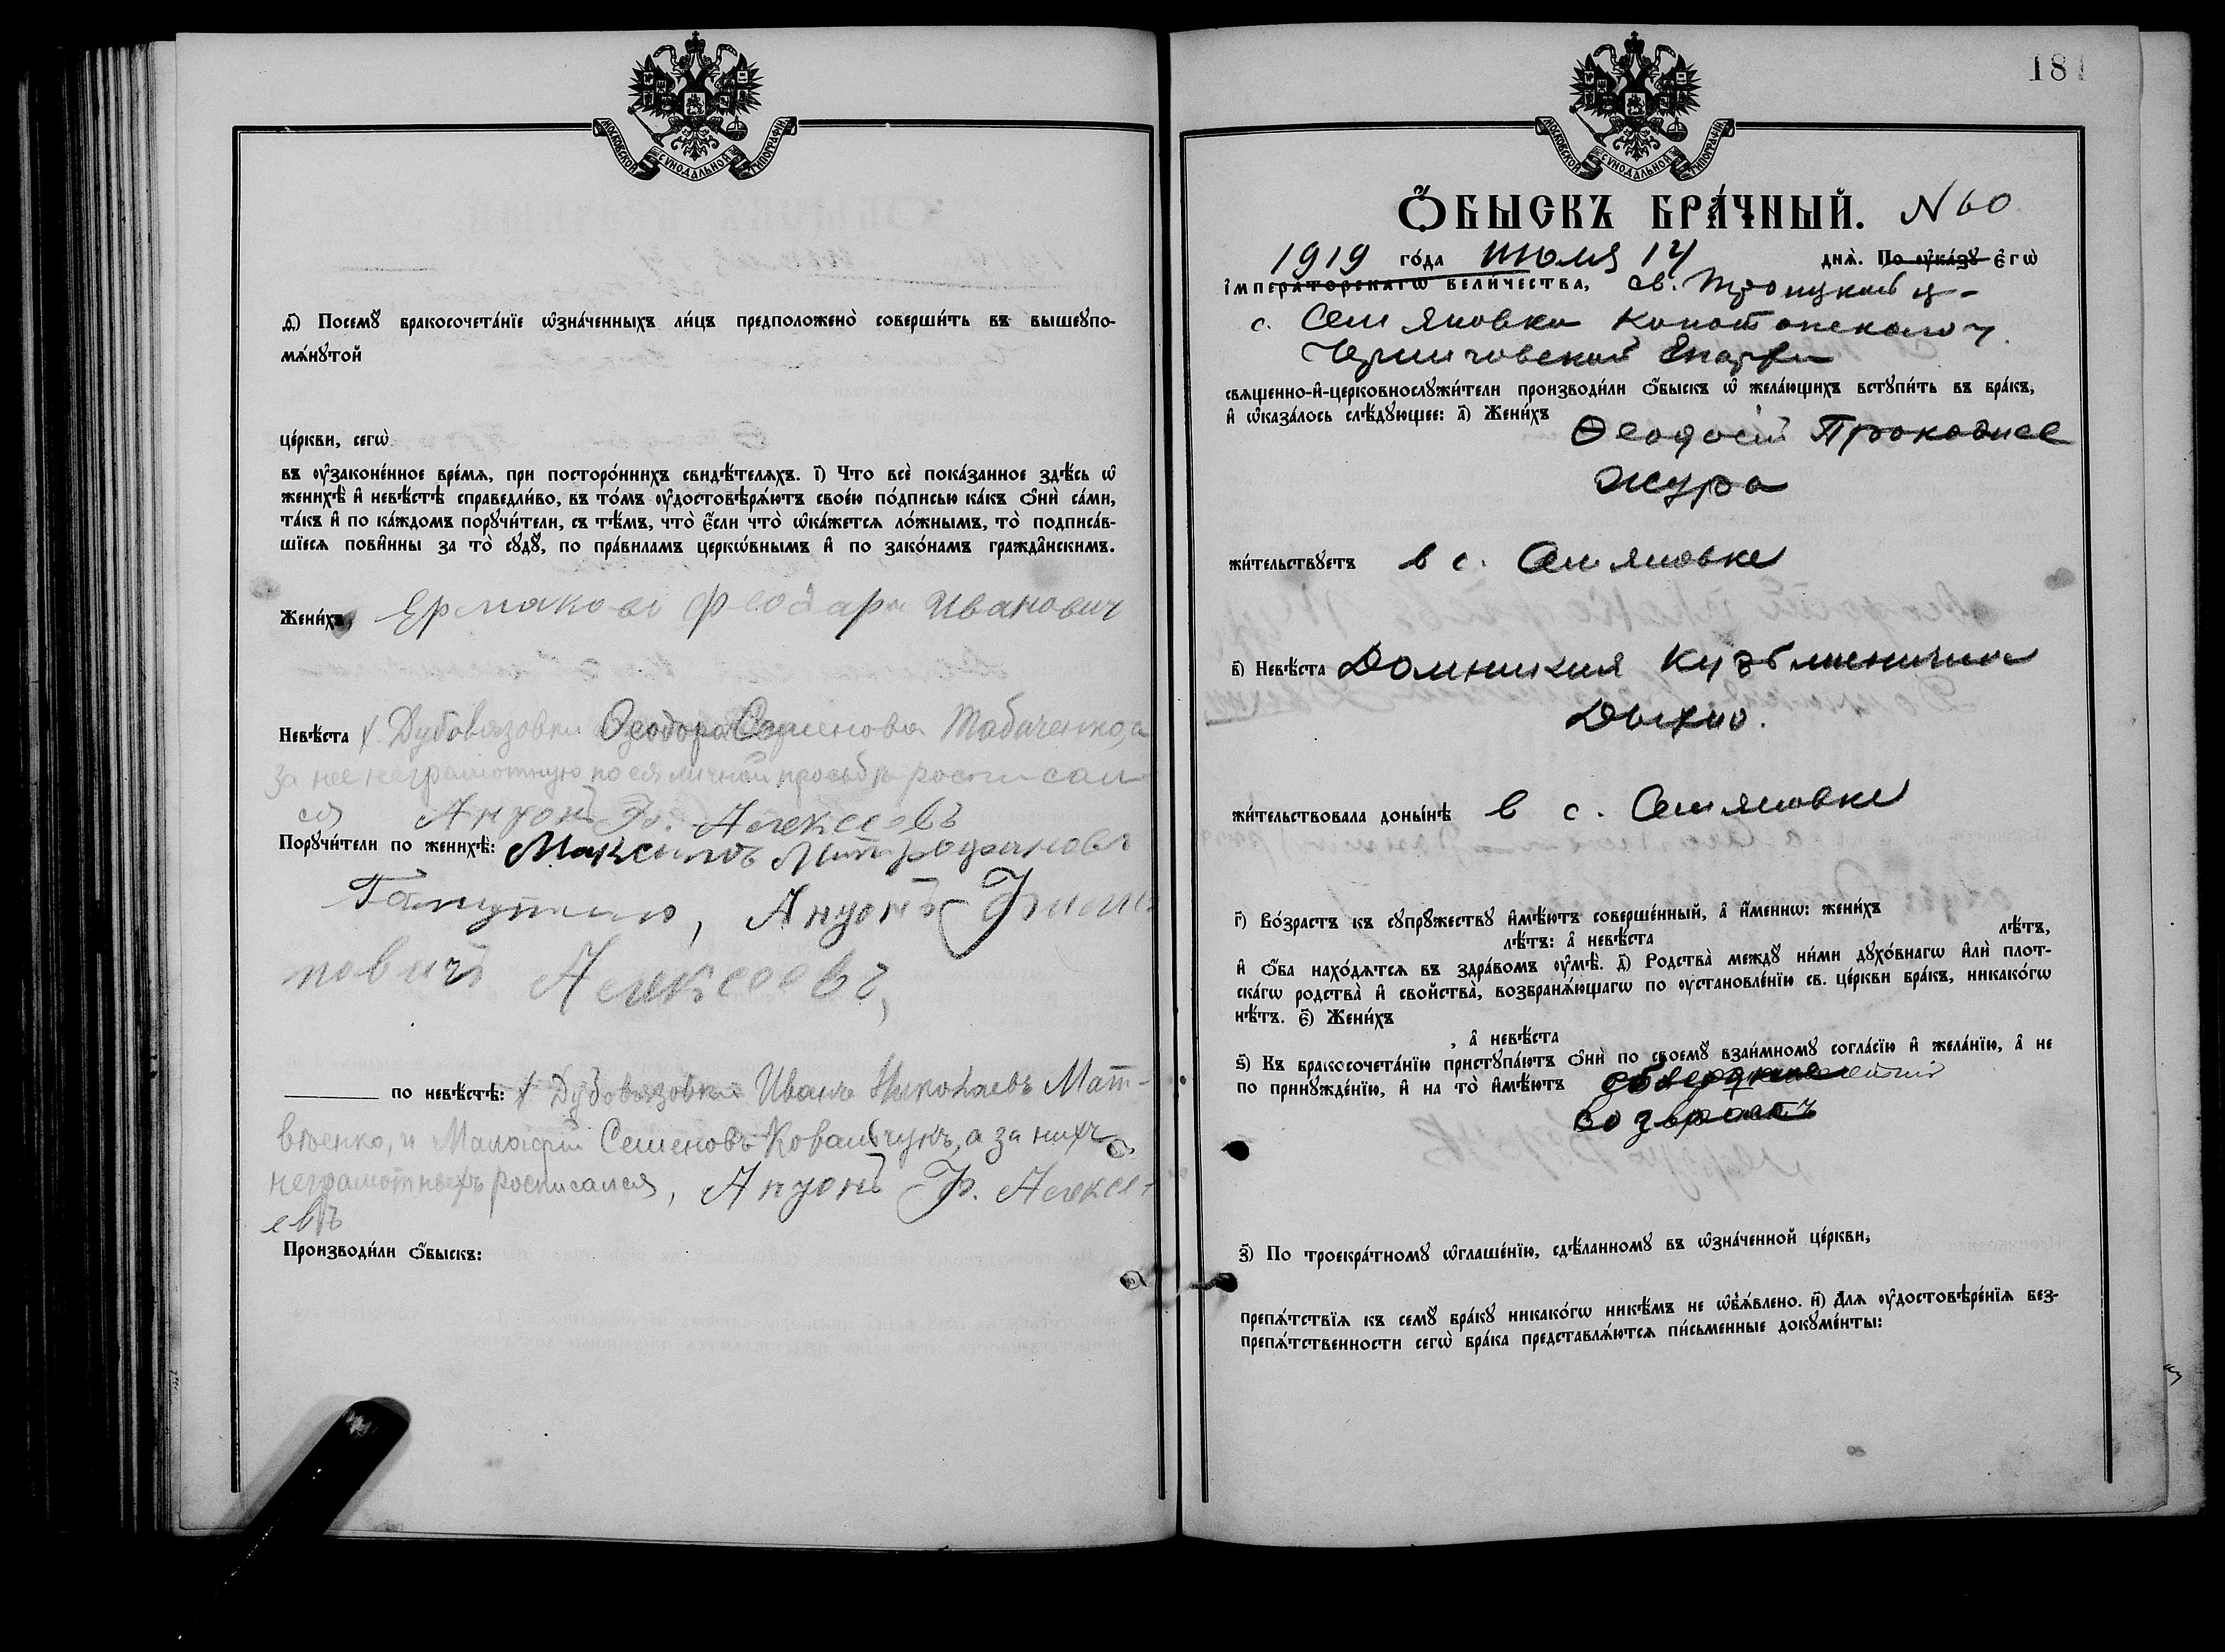 МОСКОВСКОЙ СѴНОДАЛЬНОЙ ТИПОГРАФІИ
д҃і) Посемꙋ̀ бракосочета́нїе ѡ҆зна́ченныхъ ли́цъ предположено̀ соверши́ть въ вышеꙋпо-
мѧ́нꙋтой
це́ркви, сегѡ̀
въ оу҆законе́нное вре́мѧ, при посторо́ннихъ свидѣ́телѧхъ. і҃) Что̀ всѐ пока́занное здѣ́сь ѡ҆
женихѣ̀ и҆ невѣ́стѣ справедли́во, въ то́мъ оу҆достовѣрѧ́ютъ свое́ю по́дписью ка́къ ѻ҆нѝ са́ми,
та́къ и҆ по ка́ждомъ порꙋчи́тели, съ тѣ́мъ, что̀ є҆́сли что̀ ѡ҆ка́жетсѧ ло́жнымъ, то̀ подписа́в-
шїесѧ пови́нны за то̀ сꙋдꙋ̀, по пра́виламъ церкѡ́внымъ и҆ по зако́намъ гражда̑нскимъ.
Жени́хъ, Ермаковъ Ѳеодара Иванович
Невѣ́ста х. Дубовязовки Ѳеодора Семенова Табаченко, а
за нее неграмотную по ея личной просьбѣ росписал
ся Ануонъ Ф. Алексеевъ
Порꙋчи́тели по женихѣ̀: Максимъ Митрофановъ
, Ануонъ
повичъ Алексеевъ,
по невѣ́стѣ: х. Дубовязовки Иванъ Николаевъ Мат-
вѣенко, и Семеновъ Ковальчукъ, а за нихъ
неграмотныхъ росписался, Ануонъ Ф. Алексе-
евъ
Производи́ли ѻ҆́быскъ:
181
МОСКОВСКОЙ СѴНОДАЛЬНОЙ ТИПОГРАФІИ
Ѻ҆́БЫСКЪ БРА́ЧНЫЙ. N 60
1919 го́да июля 14 днѧ̀. По оу҆ка́зꙋ є҆гѡ̀
і҆мпера́торскагѡ вели́чества, св. Троицкой ц-
с. Семяновки Конотопского у.
Черниговской Епархии
свѧщенно-и҆-церковнослꙋжи́тели производи́ли ѻ҆́быскъ ѡ҆ жела́ющихъ встꙋпи́ть въ бра́къ,
и҆ ѡ҆каза́лось слѣ́дꙋющее: а҃) Жени́хъ Ѳеодосій
Жура
жи́тельствꙋетъ в с. Семяновке
в҃) Невѣ́ста Домникия Кузьминична
жи́тельствовала доны́нѣ в с. Семяновке
г҃) Во́зрастъ къ сꙋпрꙋ́жествꙋ и҆мѣ́ютъ соверше́нный, а҆ и҆́меннѡ: жени́хъ
лѣ́тъ,
лѣ́тъ: а҆ невѣ́ста
и҆ ѻ҆́ба нахо́дѧтсѧ въ здра́вомъ оу҆мѣ̀. д҃) Родства̀ междꙋ̀ ни́ми дꙋхо́внагѡ и҆лѝ плот-
ска́гѡ родства̀ и҆ свойства̀, возбранѧ́ющагѡ по оу҆становле́нїю св. це́ркви бра́къ, никако́гѡ
нѣ́тъ. є҃) Жени́хъ
, а҆ невѣ́ста
ѕ҃) Къ бракосочета́нїю пристꙋпа́ютъ ѻ҆нѝ по своемꙋ̀ взаи́мномꙋ согла́сїю и҆ жела́нїю, а҆ не
по принꙋжде́нїю, и҆ на то̀ и҆мѣ́ютъ
возрастъ
з҃) По троекра́тномꙋ ѡ҆глаше́нїю, сдѣ́ланномꙋ въ ѡ҆зна́ченной це́ркви,
препѧ́тствїѧ къ семꙋ̀ бра́кꙋ никако́гѡ никѣ́мъ не ѡ҆б̾ѧ́влено. и҃) Длѧ оу҆достовѣре́нїѧ без-
препѧ́тственности сегѡ̀ бра́ка представлѧ́ютсѧ пи́сьменные докꙋме́нты: